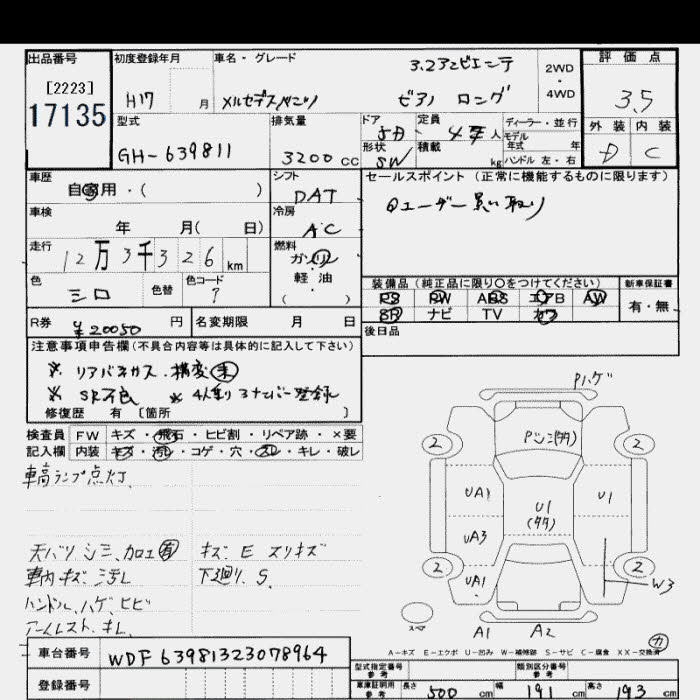 出品番号
[2223]
17135
初度登録年月
H17 月
車名・グレード
3.2アンビエンテ
メルセデスベンツ
ビアノ ロング
2WD
・
4WD
評価点
3.5
外装 内装
D C
型式
GH-639811
排気量
3200 cc
ドア 5D
形状 SW
定員 4 人
積載 kg
ディーラー・並行
モデル
年式 年
ハンドル 左・右
車歴
自家用・( )
シフト
DAT
車検
年 月( 日)
冷房
AC
走行
12万3千326km
燃料
ガソリン
軽・油
( )
色
シロ
色替
色コード
?
R券 ¥20050 円
名変期限 月 日
セールスポイント (正常に機能するものに限ります)
装備品 (純正品に限り〇をつけてください)
PS PW ABS エアB AW
SR ナビ TV カワ
新車保証書
有・無
後日品
注意事項申告欄(不具合内容等は具体的に記入して下さい)
※ リアバネカス.構変
※ SR不良 ※ 4人乗り3ナンバー登録
修復歴 有 〔箇所 〕
検査員
記入欄
FW キズ・飛石・ヒビ割・リペア跡・×要
内装 キズ・汚れ・コゲ・穴・スレ・キレ・破レ
車高ランプ点灯、
天バリ シミ、加工 有
車内キズ、汚レ
ハンドル、ハゲ、ヒビ
アームレスト、キレ、
キズ E スリキズ
下廻り、S.
Pハゲ
2 2
UA1
U1
UA3
UA1
U1
2 2
W3
A1 A2
A-キズ E-エクボ U-凹み W-補修跡 S-サビ C-腐食 XX-交換済
車台番号
WDF63981323078964
登録番号
型式指定番号
参考
類別区分番号
参考
車庫証明用
参考
長さ 500 cm 幅 191 cm 高さ 193 cm